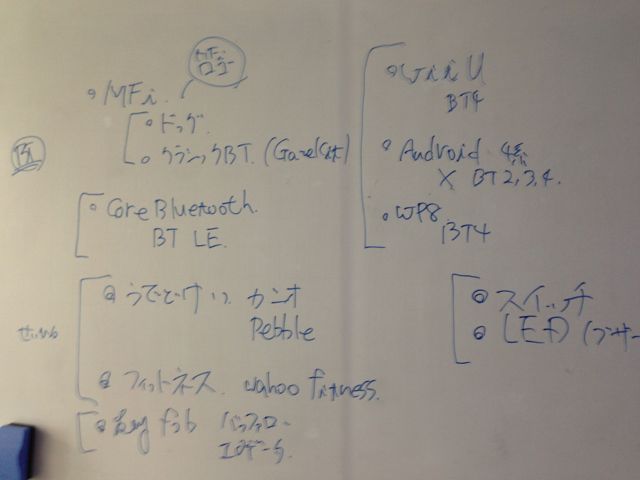 MFi
ロゴー
。MFi.
。ドック.
。クラシックBT.(GameKit)
BT
。CoreBluetooth.
BT LE.
。うでどけい カシオ
Pebble
せいひん
。フィットネス. wahoo fitness.
。key fob バッファロー
エレデータ.
。Wii U
BT4
。Android 4系
× BT2,3,4.
。WP8.
BT4
。スイッチ
。LED (ブザー